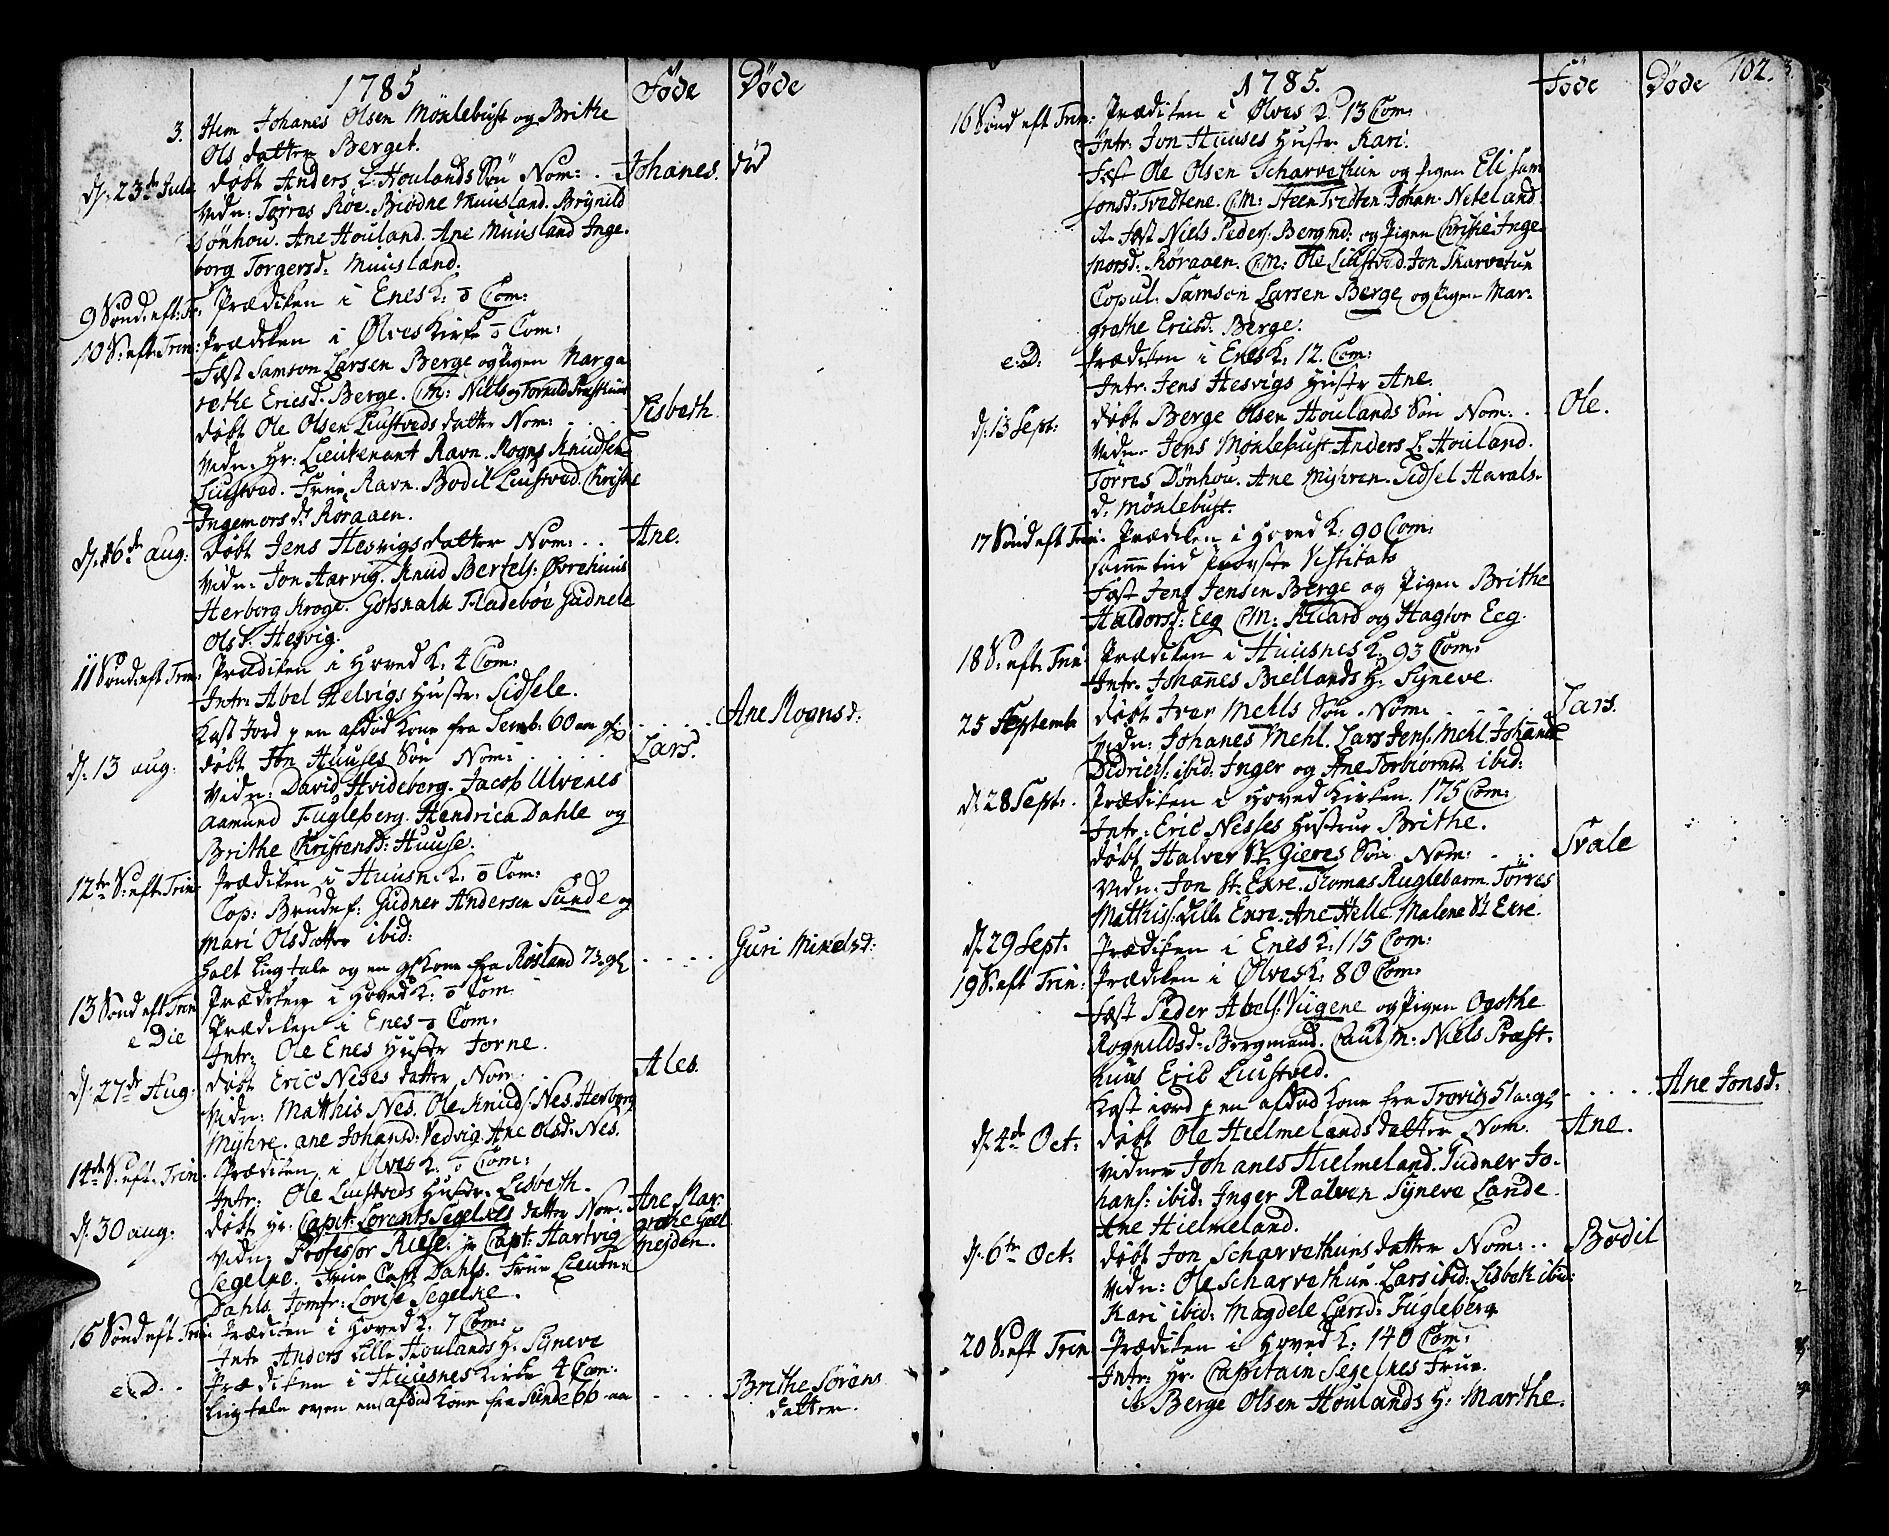 1785 Föde Döde
3. Item Johanes Olsen Möxlebust og Brithe
Ols datter Berget.
d. 23de Julii döbt Anders L: Houlands Sön Nom: . . Johanes. död
Vidn: Törres Roe. Biödne Muusland. Brÿnild
Dönhou. Ane Houland. Ane Muusland Inge-
borg Torgersd: Muusland.
9 Sönd: eft: Tr. Prædiken i Enes K: 0 Com:
10 S: eft: Trin: Prædiken i Ølves Kirke 0 Com:
Fæst Samson Larsen Berge og Pigen Marga
rethe Ericsd: Berge. CM: Niels og Tornild Præsthuus
döbt Ole Olsen Liustveds datter Nom: . . . Lisbeth.
Vidn: Hr: Lieutenant Ravn. Rogns Knudsen
Liustved. Frue Ravn. Bodil Liustved. Christie
Ingemorsdr Röraaen.
d. 6de aug: döbt Jens Hesvigs datter Nom: . . Ane.
Vidn: Jon Aarvig. Knud Bertels: Øvrehuus
Herborg Kroge. Gotskalk Fladeböe Gudnele
Olsd. Hesvig.
11 Sönd: eft Trin: Prædiken i Hoved K: 4 Com:
Intr: Abel Helvigs Hustr: Sidsele.
Kast Jord p en afdöd Kone fra Semb: 60 aar gl: . . . . Ane Rognsd:
d. 13 aug: döbt Jon Huuses Sön Nom: . . . Lars.
Vidn: David Hvideberg. Jacob Ulvenes
Aamund Fugleberg. Hendrica Dahle og
Brithe Christensd: Huuse.
12te S: eft: Trin: Prædiken i Huusn: K: 0 Com:
Cop: Brudef: Gudner Andersen Sunde og
Mari Olsdatter ibid:
Holt Liigtale og en gl Kone fra Rösland 73 gl . . . . Guri Mikelsd:
13 Sönd eft Trin Prædiken i Hoved K: 0 Com
e Die Prædiken i Enes 0 Com:
Intr: Ole Enes Hustr Jorne.
d: 27de Aug: döbt Eric Neses datter Nom . Ales.
Vidn: Matthis Nes. Ole Knuds: Nes. Herborg
Mÿhre. ane Johansd: Vedvig. Ane Olsd: Nes.
14de S: eft: Trin: Prædiken i Ølves K: 0 Com:
Intr: Ole Liustveds Hustr: Lisbeth.
d. 30 aug: döbt Hr: Capit: Lorents Segelkes datter Nom: Ane Mar-
Vidn: Professor Riese. Hr Capt: Hartvig grethe
Segelke. Frue Capt Dahls. Frue Lieutn:
Dahls. Jomfr: Lovise Segelke.
15 Sönd eft Trin Prædiken i Hoved K: 7 Com:
Intr Anders Lille Houlands H: Sÿneve
e. D. . Prædiken i Huusnes Kirke 4 Com:
Liigtale over en afdöd Kone fra Sunde 66 aar . . . . Brithe Sörens
datter.
1785. Föde Döde 102.
16 Sönd eft Trin: Prædiken i Ølves K: 13 Com:
Intr: Jon Huuses Hustr Kari.
Fæst Ole Olsen Scharvethun og Pigen Eli Sam
sonsd: Tvedtene. CM: Steen Tvedten Johan Neteland.
it. Fæst Niels Peders: Bergmd: og Pigen Christie Inge
morsd: Röraaen. CM: Ole Liustved. Jon Skarvetun
Copul: Samson Larsen Berge og Pigen Mar-
grethe Ericsd: Berge.
e. D. Prædiken i Enes K: 12. Com:
Intr. Jens Hesvigs Hustr Ane.
d. 13 Sept: döbt Berge Olsen Houlands Sön Nom: . . Ole.
Vidn: Jens Möxlebust Anders L: Houland.
Törres Dönhou. Ane Mÿhren. Sidsel Harals-
d. Möxlebust.
17 Sönd eft Trin. Prædiken i Hoved K: 90 Com:
samme tid Provste Visitats
Fæst Jens Jensen Berge og Pigen Brithe
Haldorsd: Eeg CM: Ricard og Hagtor Eeg.
18 S: eft: Trin Prædiken i Huusnes K: 93 Com:
Intr. Johannes Biellands H: Sÿneve.
25 Septemb: döbt Iver Mehls Sön. Nom: . . . . Lars.
Vidn: Johanes Mehl. Lars Jens: Mehl. Johanes
Didrichs: ibid: Inger og Ane Torbiörnsd ibid:
d. 28 Sept: . Prædiken i Hoved Kirken. 175 Com:
Intr: Eric Nesses Hustrue Brithe.
döbt Halver St. Gieres Sön Nom: . . . Svale
Vidn: Jon St. Exre. Thomas Ruglebarm. Törres
Matthis: Lille Exre. Ane Helle Malene St Exre.
d. 29 Sept: Prædiken i Enes K: 115 Com:
19 S: eft Trin: Prædiken i Ølves K: 80 Com:
Fæst Peder Abels: Viigene og Pigen Ogothe
Rognildsd: Bergmand. Caut M: Niels Præst-
huus Eric Liustved.
Kast iord p en afdöd Kone fra Trovig 51 a: gl . . . . . Ane Jonsd:
d. 4de Oct: döbt Ole Hielmelands datter Nom: Ane.
Vidner Johanes Hielmeland. Gudner Jo-
hans: ibid: Inger Rålven Sÿneve Lande.
Ane Hielmeland.
d. 6te Oct. döbt Jon Scharvethuns datter Nom: . . Bodil
Vidn: Ole Scharvethun. Lars ibid: Lisbeth ibid:
Kari ibid: Magdele Larsd: Fugleberg
20 S: eft Trin Prædiken i Hoved K: 140 Com:
Intr: Hr. Capitain Segelkes Frue.
it Berge Olsen Houlands H: Marthe.